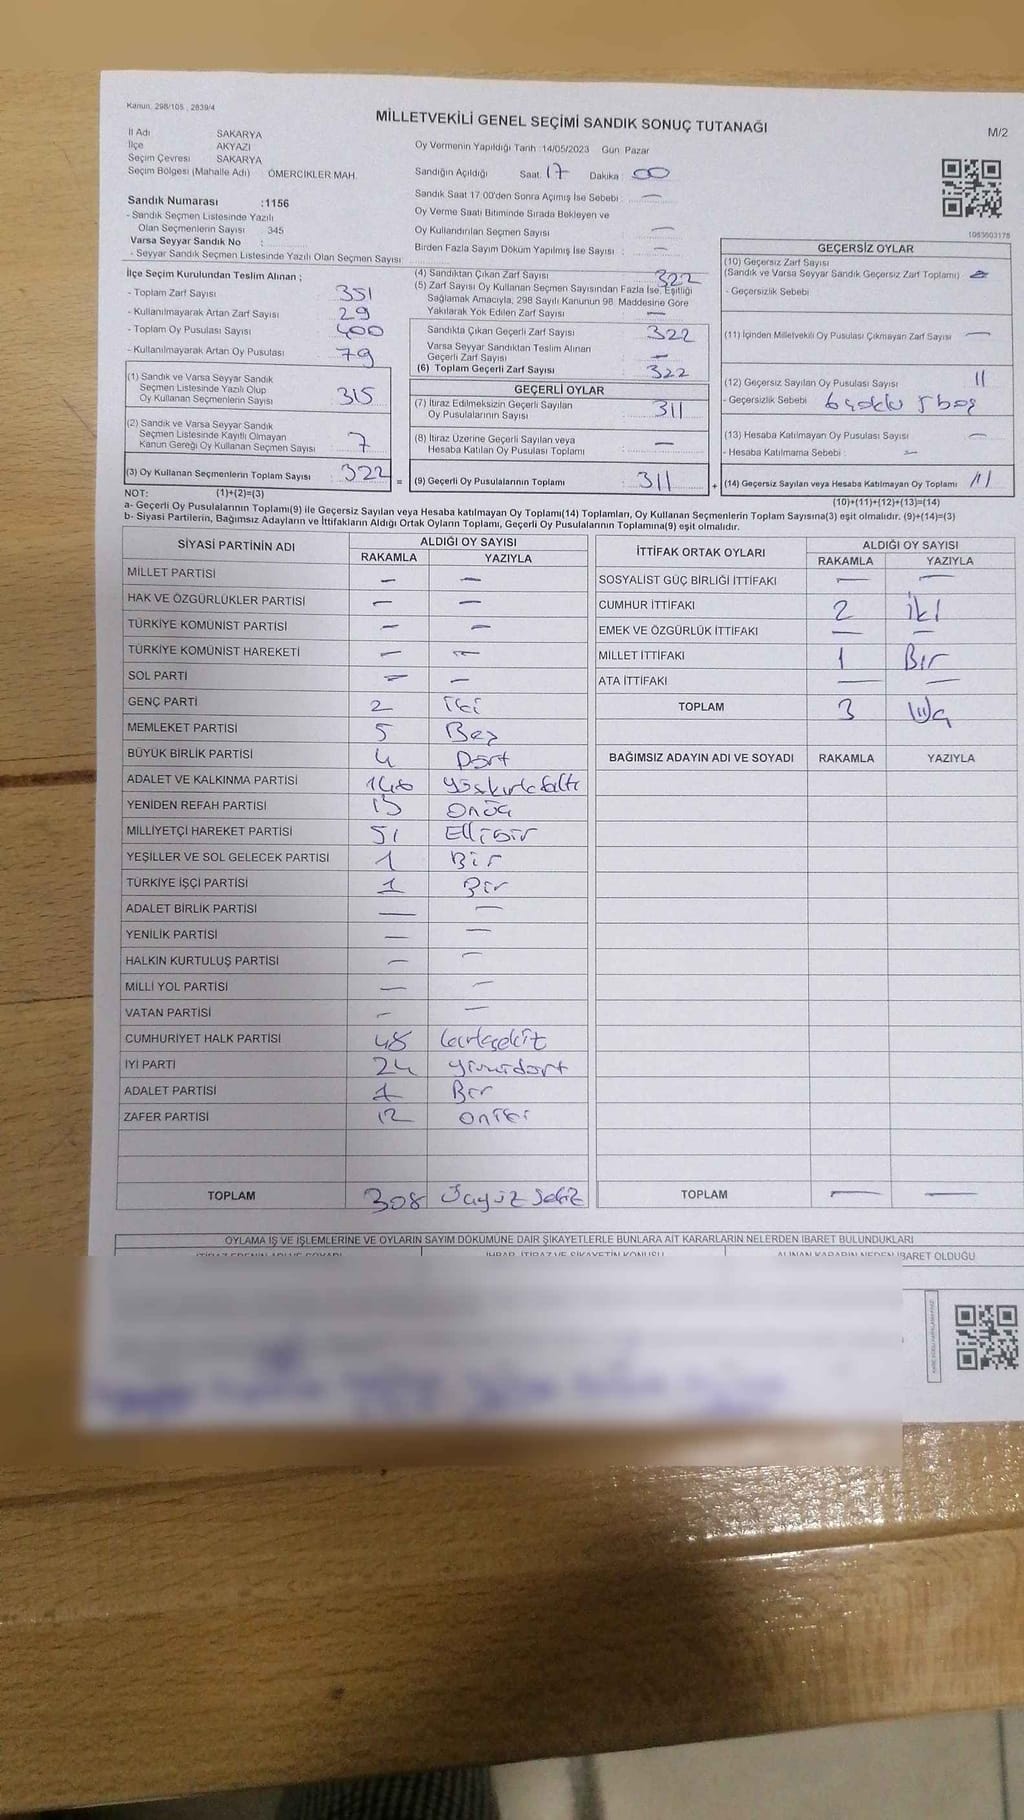 Kanun, 298/105 , 2839/4
MİLLETVEKİLİ GENEL SEÇİMİ SANDIK SONUÇ TUTANAĞI
M/2
İl Adı SAKARYA
İlçe AKYAZI
Seçim Çevresi SAKARYA
Seçim Bölgesi (Mahalle Adı) ÖMERCİKLER MAH.
Oy Vermenin Yapıldığı Tarih :14/05/2023 Gün: Pazar
Sandığın Açıldığı Saat: 17 Dakika : 00
Sandık Saat 17:00'den Sonra Açımış İse Sebebi : —
Oy Verme Saati Bitiminde Sırada Bekleyen ve
Oy Kullandırılan Seçmen Sayısı : —
Birden Fazla Sayım Döküm Yapılmış İse Sayısı : —
Sandık Numarası :1156
- Sandık Seçmen Listesinde Yazılı
Olan Seçmenlerin Sayısı 345
Varsa Seyyar Sandık No :
- Seyyar Sandık Seçmen Listesinde Yazılı Olan Seçmen Sayısı
İlçe Seçim Kurulundan Teslim Alınan ;
- Toplam Zarf Sayısı 351
- Kullanılmayarak Artan Zarf Sayısı 29
- Toplam Oy Pusulası Sayısı 400
- Kullanılmayarak Artan Oy Pusulası 79
(1) Sandık ve Varsa Seyyar Sandık
Seçmen Listesinde Yazılı Olup
Oy Kullanan Seçmenlerin Sayısı 315
(2) Sandık ve Varsa Seyyar Sandık
Seçmen Listesinde Kayıtlı Olmayan
Kanun Gereği Oy Kullanan Seçmen Sayısı 7
(3) Oy Kullanan Seçmenlerin Toplam Sayısı 322 =
(4) Sandıktan Çıkan Zarf Sayısı 322
(5) Zarf Sayısı Oy Kullanan Seçmen Sayısından Fazla İse, Eşitliği
Sağlamak Amacıyla, 298 Sayılı Kanunun 98. Maddesine Göre
Yakılarak Yok Edilen Zarf Sayısı —
Sandıkta Çıkan Geçerli Zarf Sayısı 322
Varsa Seyyar Sandıktan Teslim Alınan
Geçerli Zarf Sayısı —
(6) Toplam Geçerli Zarf Sayısı 322
GEÇERLİ OYLAR
(7) İtiraz Edilmeksizin Geçerli Sayılan
Oy Pusulalarının Sayısı 311
(8) İtiraz Üzerine Geçerli Sayılan veya
Hesaba Katılan Oy Pusulası Toplamı —
(9) Geçerli Oy Pusulalarının Toplamı 311 +
1083603178
GEÇERSİZ OYLAR
(10) Geçersiz Zarf Sayısı
(Sandık ve Varsa Seyyar Sandık Geçersiz Zarf Toplamı)
- Geçersizlik Sebebi
(11) İçinden Milletvekili Oy Pusulası Çıkmayan Zarf Sayısı —
(12) Geçersiz Sayılan Oy Pusulası Sayısı 11
- Geçersizlik Sebebi 6 çoklu 5 boş
(13) Hesaba Katılmayan Oy Pusulası Sayısı —
- Hesaba Katılmama Sebebi : —
(14) Geçersiz Sayılan veya Hesaba Katılmayan Oy Toplamı 11
NOT: (1)+(2)=(3) (10)+(11)+(12)+(13)=(14)
a- Geçerli Oy Pusulalarının Toplamı(9) ile Geçersiz Sayılan veya Hesaba katılmayan Oy Toplamı(14) Toplamları, Oy Kullanan Seçmenlerin Toplam Sayısına(3) eşit olmalıdır. (9)+(14)=(3)
b- Siyasi Partilerin, Bağımsız Adayların ve İttifakların Aldığı Ortak Oyların Toplamı, Geçerli Oy Pusulalarının Toplamına(9) eşit olmalıdır.
SİYASİ PARTİNİN ADI ALDIĞI OY SAYISI
RAKAMLA YAZIYLA
MİLLET PARTİSİ — —
HAK VE ÖZGÜRLÜKLER PARTİSİ — —
TÜRKİYE KOMÜNİST PARTİSİ — —
TÜRKİYE KOMÜNİST HAREKETİ — —
SOL PARTİ — —
GENÇ PARTİ 2 iki
MEMLEKET PARTİSİ 5 Beş
BÜYÜK BİRLİK PARTİSİ 4 Dört
ADALET VE KALKINMA PARTİSİ 146 yüzkırkaltı
YENİDEN REFAH PARTİSİ 13 onüç
MİLLİYETÇİ HAREKET PARTİSİ 51 Ellibir
YEŞİLLER VE SOL GELECEK PARTİSİ 1 Bir
TÜRKİYE İŞÇİ PARTİSİ 1 Bir
ADALET BİRLİK PARTİSİ — —
YENİLİK PARTİSİ — —
HALKIN KURTULUŞ PARTİSİ — —
MİLLİ YOL PARTİSİ — —
VATAN PARTİSİ — —
CUMHURİYET HALK PARTİSİ 48 kırksekiz
İYİ PARTİ 24 yirmidört
ADALET PARTİSİ 1 Bir
ZAFER PARTİSİ 12 oniki
TOPLAM 308 Üçyüz Sekiz
İTTİFAK ORTAK OYLARI ALDIĞI OY SAYISI
RAKAMLA YAZIYLA
SOSYALİST GÜÇ BİRLİĞİ İTTİFAKI — —
CUMHUR İTTİFAKI 2 İki
EMEK VE ÖZGÜRLÜK İTTİFAKI — —
MİLLET İTTİFAKI 1 Bir
ATA İTTİFAKI — —
TOPLAM 3 Üç
BAĞIMSIZ ADAYIN ADI VE SOYADI RAKAMLA YAZIYLA
TOPLAM — —
OYLAMA İŞ VE İŞLEMLERİNE VE OYLARIN SAYIM DÖKÜMÜNE DAİR ŞİKAYETLERLE BUNLARA AİT KARARLARIN NELERDEN İBARET BULUNDUKLARI
İTİRAZ EDENİN ADI VE SOYADI İHBAR, İTİRAZ VE ŞİKAYETİN KONUSU ALINAN KARARIN NEDEN İBARET OLDUĞU